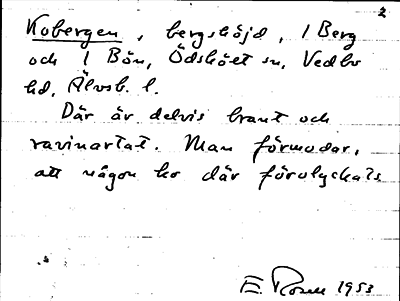 2
Kobergen, bergshöjd, 1 Berg
och 1 Bön, Ödsköet sn, Vedbo
hd, Älvsb. l.
Där är delvis brant och
ravinartat. Man förmodar,
att någon ko där förolyckats
E. Rosell 1953